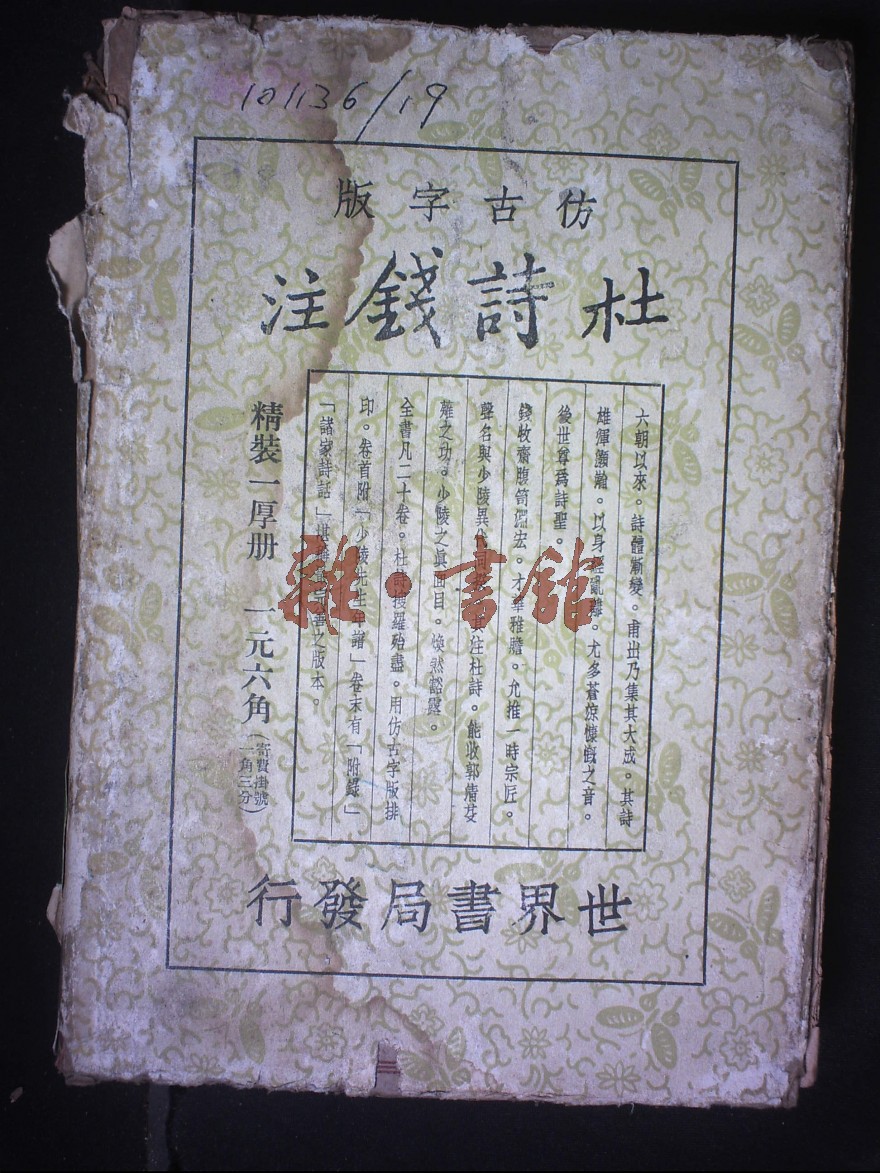 101136/19
仿古字版
杜詩錢注
六朝以來。詩體漸變。甫出乃集其大成。其詩
雄渾灝瀚。以身經亂離。尤多蒼涼慷慨之音。
後世尊爲詩聖。
錢牧齋腹笥淵宏。才華雅贍。允推一時宗匠。
聲名與少陵異代 注杜詩。能收郭清芟
薙之功。少陵之眞面目。煥然豁露。
全書凡二十卷。杜詩搜羅殆盡。用仿古字版排
印。卷首附「少陵先生年譜」卷末有「附錄」
「諸家詩話」堪 之版本。
精裝一厚册 一元六角(寄費掛號一角三分)
世界書局發行
雜·書館